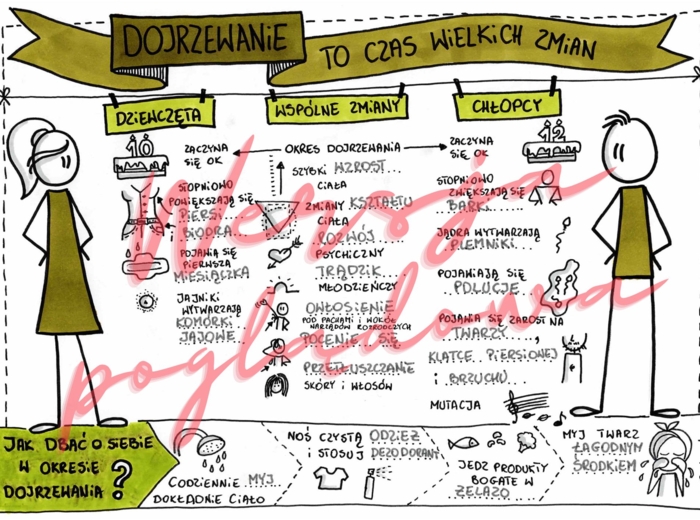 DOJRZEWANIE
TO CZAS WIELKICH ZMIAN
DZIEWCZĘTA
WSPÓLNE ZMIANY
CHŁOPCY
10
ZACZYNA
SIĘ OK
STOPNIOWO
POWIĘKSZAJĄ SIĘ
PIERSI
I BIODRA
POJAWIA SIĘ
PIERWSZA
MIESIĄCZKA
JAJNIKI
WYTWARZAJĄ
KOMÓRKI
JAJOWE
OKRES DOJRZEWANIA
SZYBKI WZROST
CIAŁA
ZMIANY KSZTAŁTU
CIAŁA
ROZWÓJ
PSYCHICZNY
TRĄDZIK
MŁODZIEŃCZY
OWŁOSIENIE
POD PACHAMI I WOKÓŁ
NARZĄDÓW ROZRODCZYCH
POCENIE SIĘ
PRZETŁUSZCZANIE
SKÓRY I WŁOSÓW
ZACZYNA
SIĘ OK
12
STOPNIOWO
ZWIĘKSZAJĄ SIĘ
BARKI
JĄDRA WYTWARZAJĄ
PLEMNIKI
POJAWIAJĄ SIĘ
POLUCJE
POJAWIA SIĘ ZAROST NA
TWARZY,
KLATCE PIERSIOWEJ
I BRZUCHU
MUTACJA
Wersja
poglądowa
JAK DBAĆ O SIEBIE
W OKRESIE
DOJRZEWANIA ?
CODZIENNIE MYJ
DOKŁADNIE CIAŁO
NOŚ CZYSTĄ ODZIEŻ
I STOSUJ DEZODORANT
JEDZ PRODUKTY
BOGATE W
ŻELAZO
MYJ TWARZ
ŁAGODNYM
ŚRODKIEM